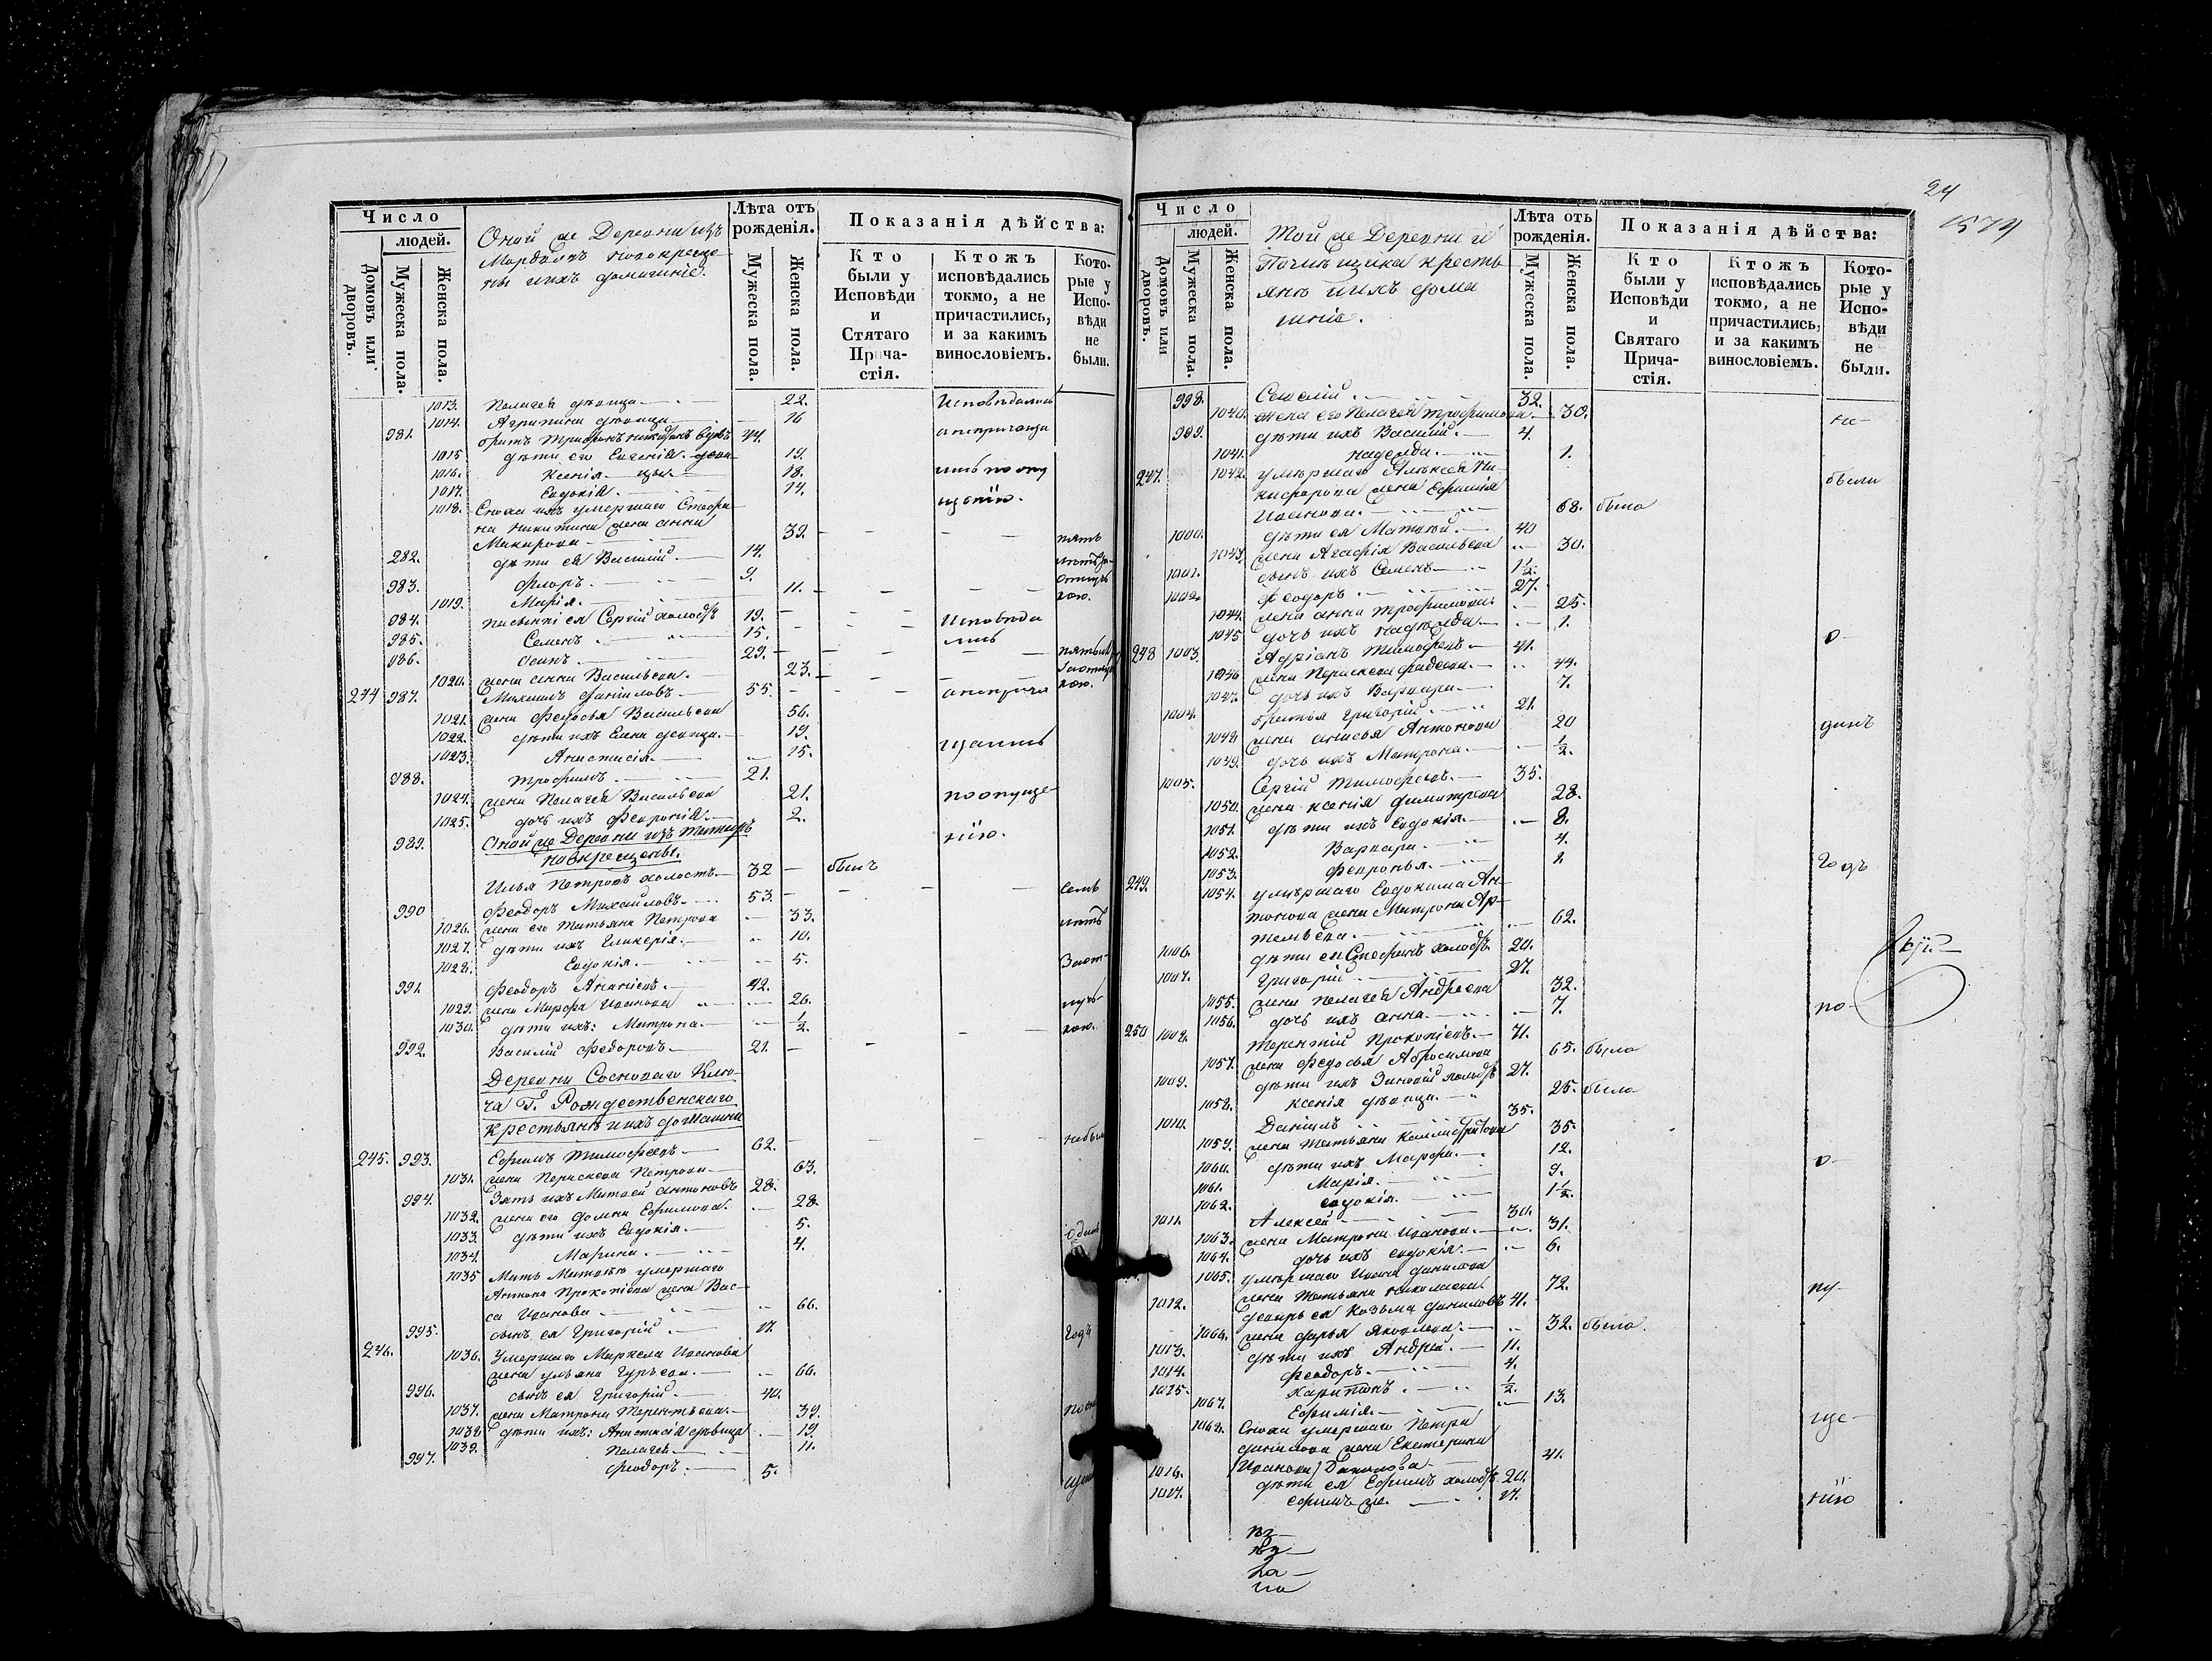 Число
людей.
Домовъ или дворовъ.
Мужеска пола.
Женска пола.
Оной же Деревни изъ
Мордовъ новокреще-
ны и ихъ домашніе.
Лѣта отъ рожденія.
Мужеска пола.
Женска пола.
Показанія дѣйства:
Кто были у Исповѣди и Стятаго Прича-стія.
Ктожъ исповѣдались токмо, а не причастились, и за какимъ винословіемъ.
Кото-рые у Испо-вѣди не были.
1013. Пелагея дѣвица 22. Исповѣдались
1014. Агрипина дѣвица 16
981. братъ Трифонъ 44. а неприча
1015 дѣти его Евгенія 19.
1016. Ксенія 18. лись по опу
1017. Евдокія 14.
1018. Сноха ихъ умершаго Стефа-
на Никитина жена Анна щенію.
Макарова 39. пять
982. дѣти ея Василій 14. лѣтъ за
983. Флоръ 9. отлуч
1019. Марія 11. кою.
984. пасынки ея Сергій холостъ 19. Исповѣда
985. Семенъ 15. лись
986. Осипъ 29.
1020. жена Анна Васильева 23. кою.
244 987. Михаилъ Даниловъ 55. а неприча
1021. жена Федосья Васильева 56.
1022. дѣти ихъ Елена дѣвица 19.
1023. Анастасія 15. щались
988. Трофимъ 21.
1024. жена Пелагея Васильева 21. по опуще
1025. дочь ихъ Февронія 2.
989. Оной же Деревни изъ Татаръ нію.
новокрещены.
Илья Петровъ холостъ 32 былъ
990 Феодоръ Михайловъ 53. семь
1026. жена его Татьяна Петрова 33. лѣтъ
1027. дѣти ихъ Гликерія 10.
1028. Евдокія 5. За от-
991. Феодоръ Ананіевъ 42.
1029. жена Марфа Иванова 26. луч-
1030. дѣти ихъ: Матрона 1/2. кою.
992. Василій Федоровъ 21.
Деревни Сосноваго Клю-
ча Г. Рождественскаго
крестьяне и ихъ домашни
245. 993. Ефимъ Тимофеевъ 62. небыл
1031. жена Параскева Петрова 63.
994. Зять ихъ Матвей Антоновъ 28.
1032. жена его Домна Ефимова 28.
1033. дѣти ихъ Евдокія 5. Одинъ
1034. Марина 4.
1035 Мать Матвѣю умершаго
Антона Прокопіева жена Вас-
са Иванова 66.
995. сынъ ея Григорій 17. Годъ
246. 1036. Умершаго Маркела Иванова
жена Ульяна Гурьева 66.
996. сынъ ея Григорій 40.
1037. жена Матрона Терентьева 39. по оп
1038 дѣти ихъ: Анастасія дѣвица 19
1039. Пелагея 11.
997. Феодоръ 5. уще
24
1574
Число
людей.
Домовъ или дворовъ.
Мужеска пола.
Женска пола.
Той же Деревни и
Помѣщика кресть
яне и ихъ дома
шніе.
Лѣта отъ рожденія.
Мужеска пола.
Женска пола.
Показанія дѣйства:
Кто были у Исповѣди и Святаго Прича-стія.
Ктожъ исповѣдались токмо, а не причастились, и за какимъ винословіемъ.
Кото-рые у Испо-вѣди не были.
998. Савелій 32.
1040. жена его Пелагея Трофимова 30. не-
999. дѣти ихъ Василій 4.
1041. Надежда 1.
247. 1042. умершаго Алексея Ни- были
кифорова жена Ефимія
Иванова 68. была
1000. дѣти ея Матвѣй 40
1043 жена Агафія Васильева 30.
1001. сынъ ихъ Семенъ 1 1/2.
1002. Феодоръ 27.
1044. жена Анна Трофимова 25.
1045 дочь ихъ Надежда 1.
248 1003. Адріанъ Тимофеевъ 41. о-
1046 жена Параскева Фадеева 44.
1047. дочь ихъ Варвара 7.
1004. братья Григорій 21.
1048 жена Анисья Антонова 20 динъ
1049. дочь ихъ Матрона 1/2.
1005. Сергій Тимофеевъ 35.
1050. жена Ксенія Димитрева 28.
1051. дѣти ихъ Евдокія 8.
1052. Варвара 4.
1053. Февронья 1. Годъ
249. 1054. умершаго Евдокима Ан-
тонова жена Матрона Ар-
темьева 62.
1006. дѣти ея Стефанъ холостъ 20.
1007. Григорій 27.
1055. жена Пелагея Андреева 32.
1056. дочь ихъ Анна 7. по-
250 1008. Терентій Прокопіевъ 71.
1057. жена Федосья Абросимова 65. была
1009. дѣти ихъ Зиновій холостъ 27.
1058. Ксенія дѣвица 25. была
1010. Даніилъ 35.
1059. жена Татьяна Каллистратова 35.
1060. дѣти ихъ Марфа 12. о-
1061. Марія 9.
1062. Евдокія 1 1/2.
1011. Алексей 30.
1063. жена Матрона Иванова 31.
1064. дочь ихъ Евдокія 6.
1065. умершаго Ивана Данилова
жена Татьяна Николаева 72. пу-
1012. деверь ея Козьма Даниловъ 41.
1066. жена Дарья Яковлева 32. была.
1013. дѣти ихъ Андрей 11.
1014. Феодоръ 4.
1015. Харитонъ 1/2.
1067. Ефимія 13.
1068. Сноха умершаго Петра ще-
Данилова жена Екатерина
(Иванова) Данилова 41.
1016. дѣти ея Ефимъ холостъ 20.
1017. Ефимъ же 17. нію